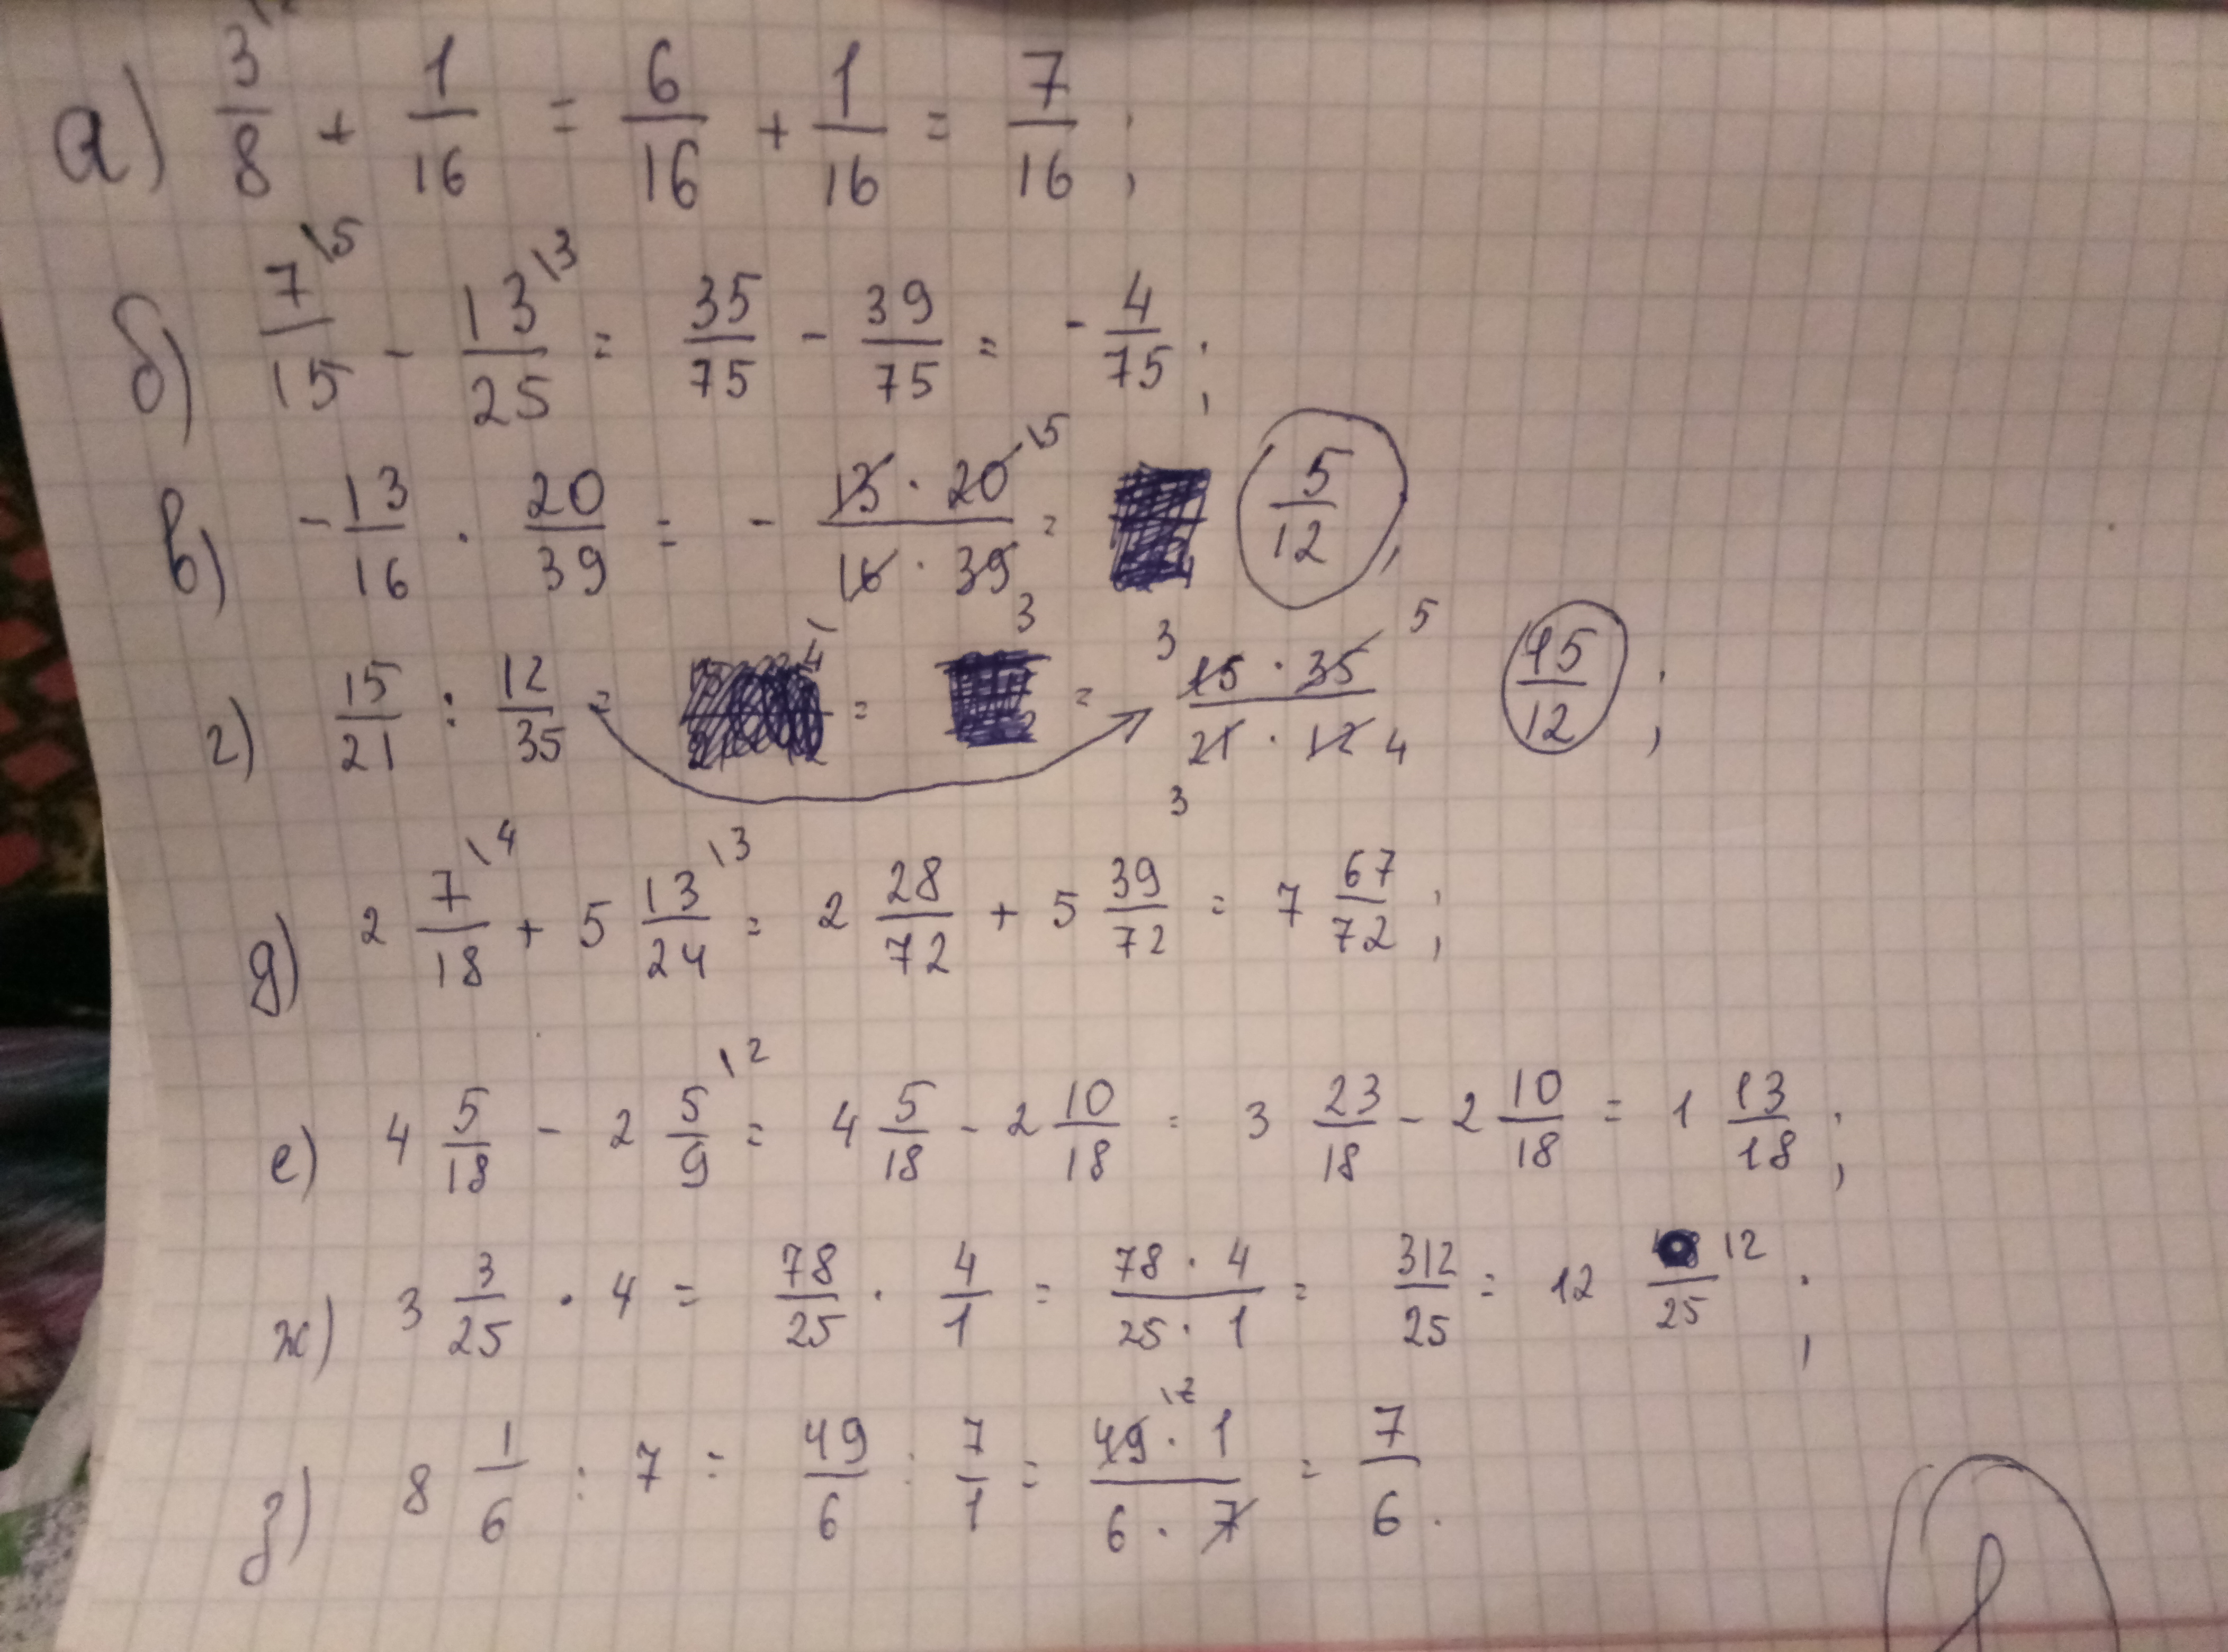 а) 3/8 \2 + 1/16 = 6/16 + 1/16 = 7/16 ;
б) 7/15 \5 - 13/25 \3 = 35/75 - 39/75 = - 4/75 ;
в) - 13/16 · 20/39 = - 13 · 20 \5 / 16 · 39 = 5/12 ;
г) 15/21 : 12/35 = = 3 = 3 15 · 35 5 / 3 21 · 12 4 15/12 ;
д) 2 7/18 \4 + 5 13/24 \3 = 2 28/72 + 5 39/72 = 7 67/72 ;
е) 4 5/18 - 2 5/9 \2 = 4 5/18 - 2 10/18 = 3 23/18 - 2 10/18 = 1 13/18 ;
ж) 3 3/25 · 4 = 78/25 · 4/1 = 78 · 4 / 25 · 1 = 312/25 = 12 12/25 ;
з) 8 1/6 : 7 = 49/6 : 7/1 = 49 \7 · 1 / 6 · 7 = 7/6 .